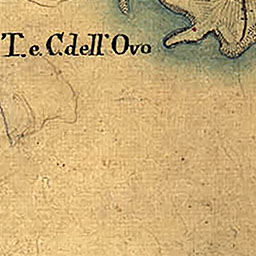 T. e C. dell' Ovo